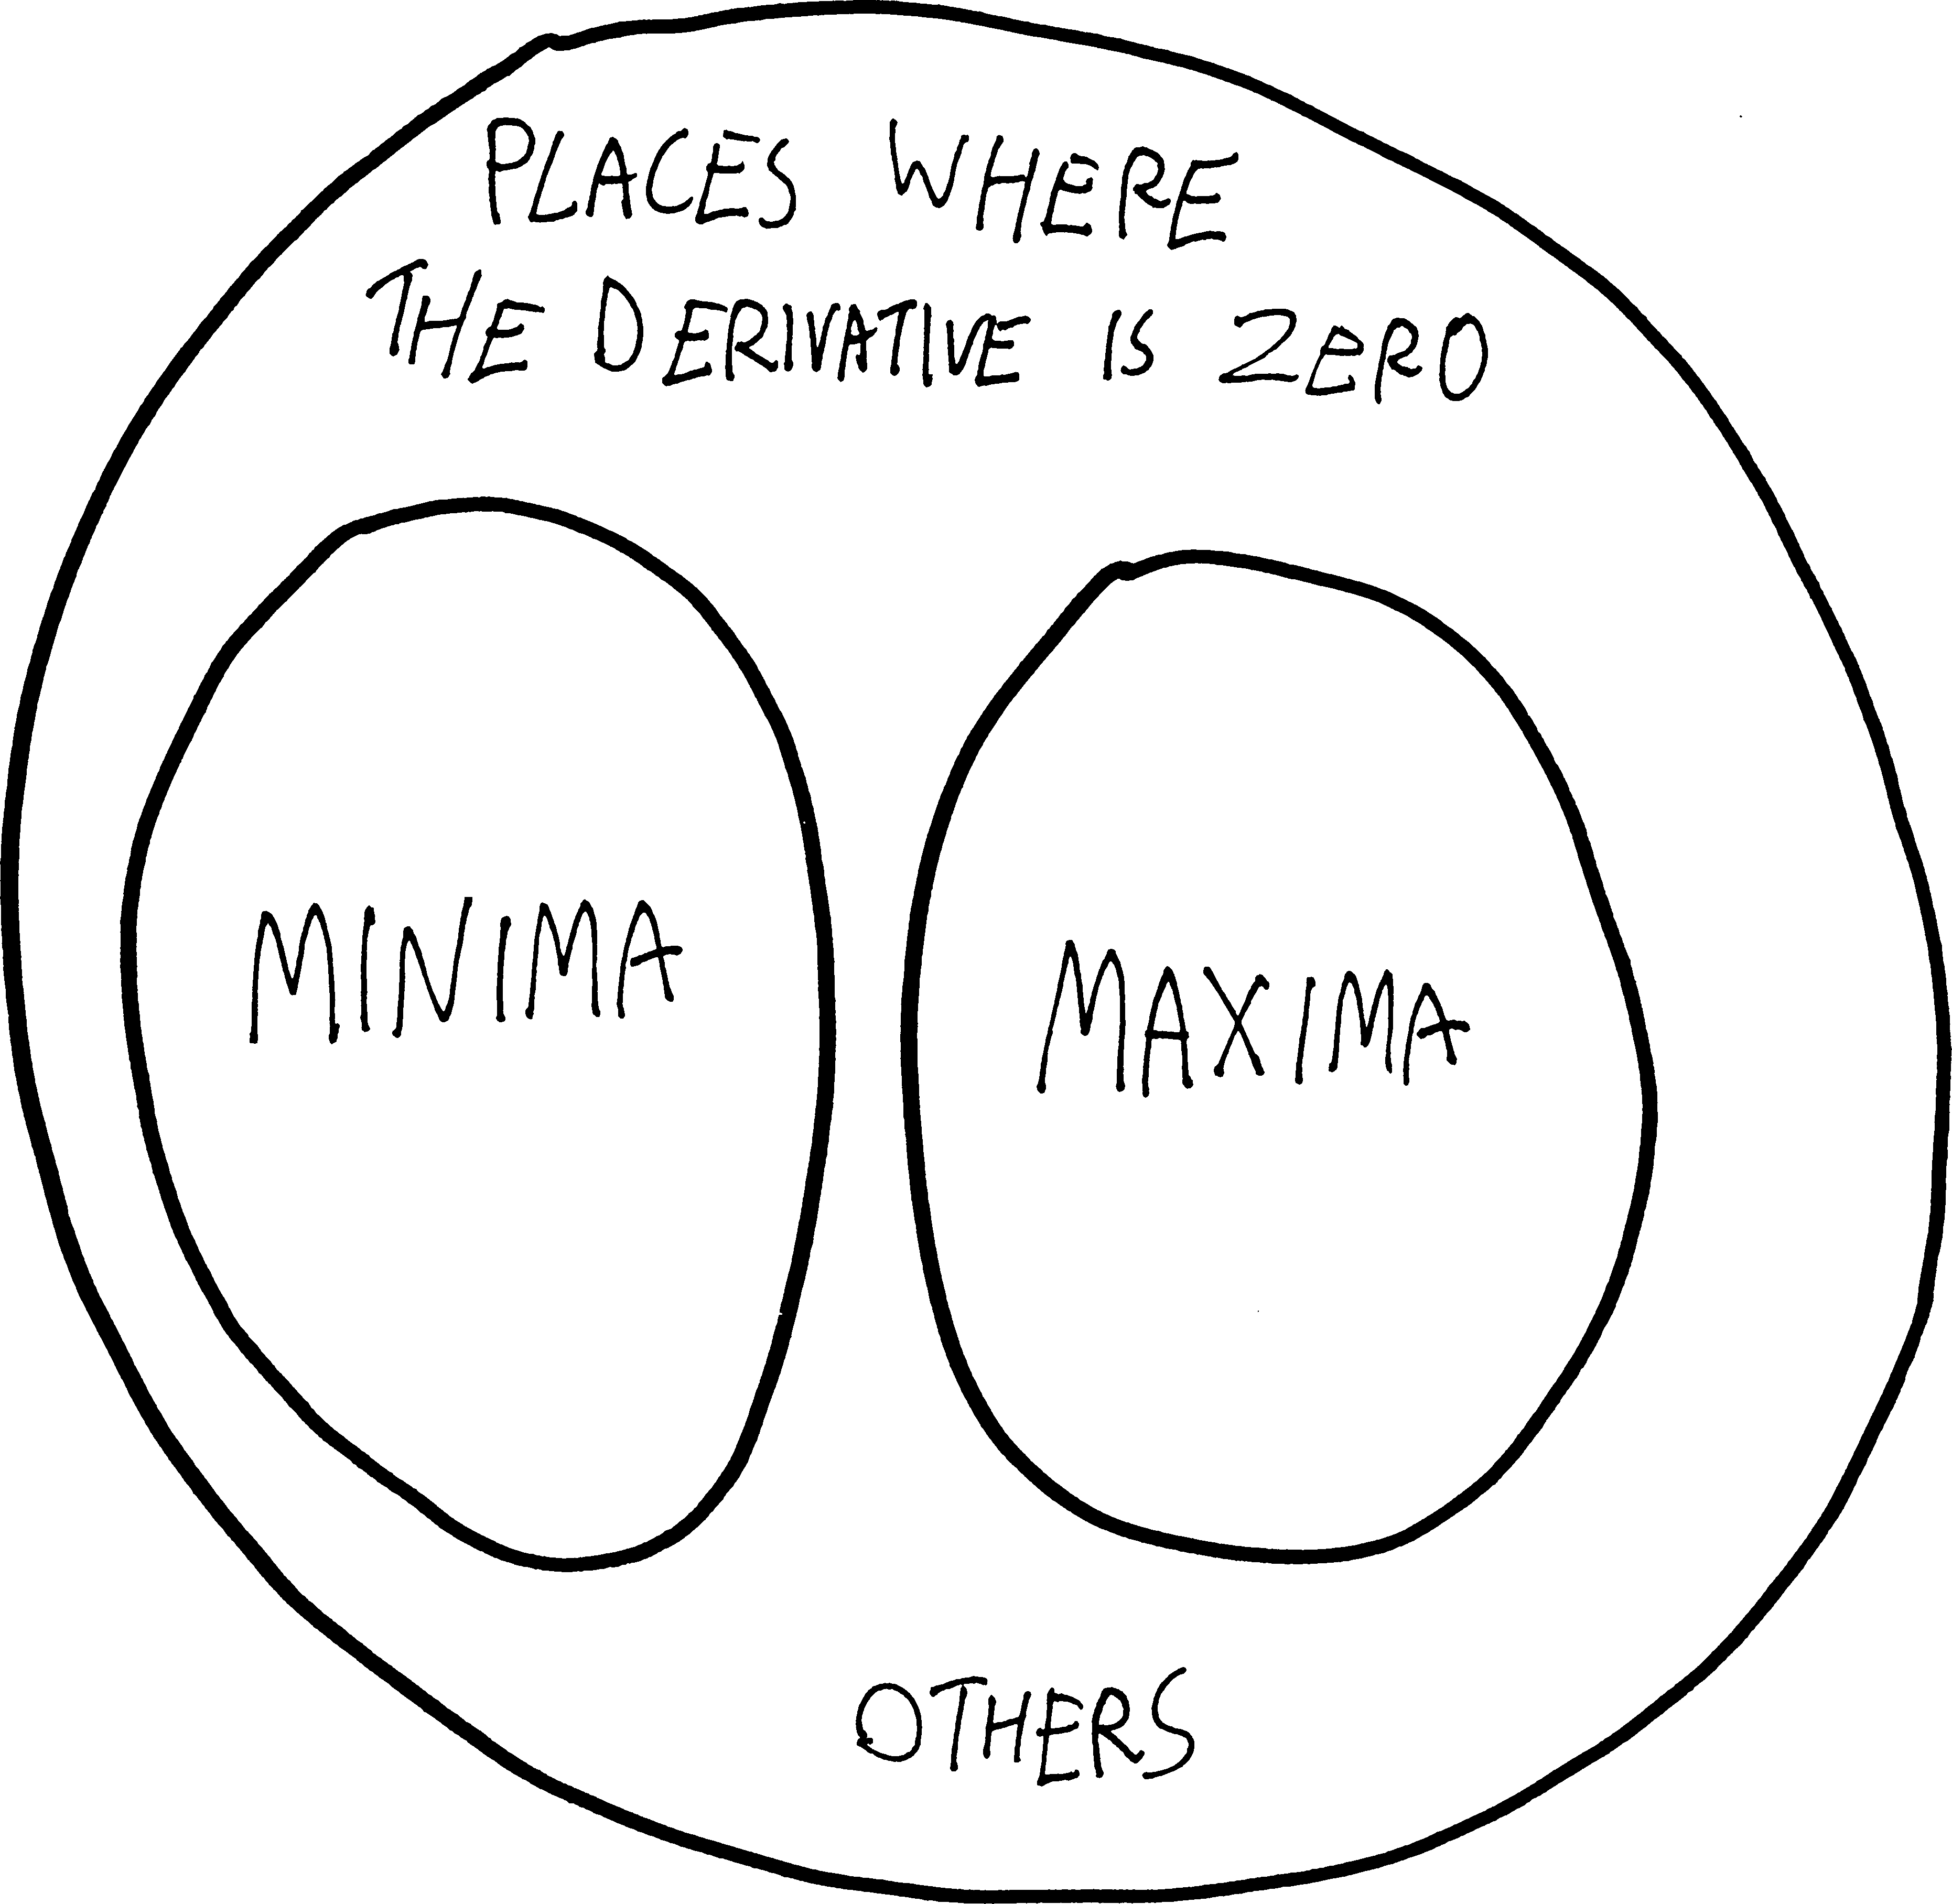 PLACES WHERE
THE DERIVATIVE IS ZERO
MINIMA
MAXIMA
OTHERS